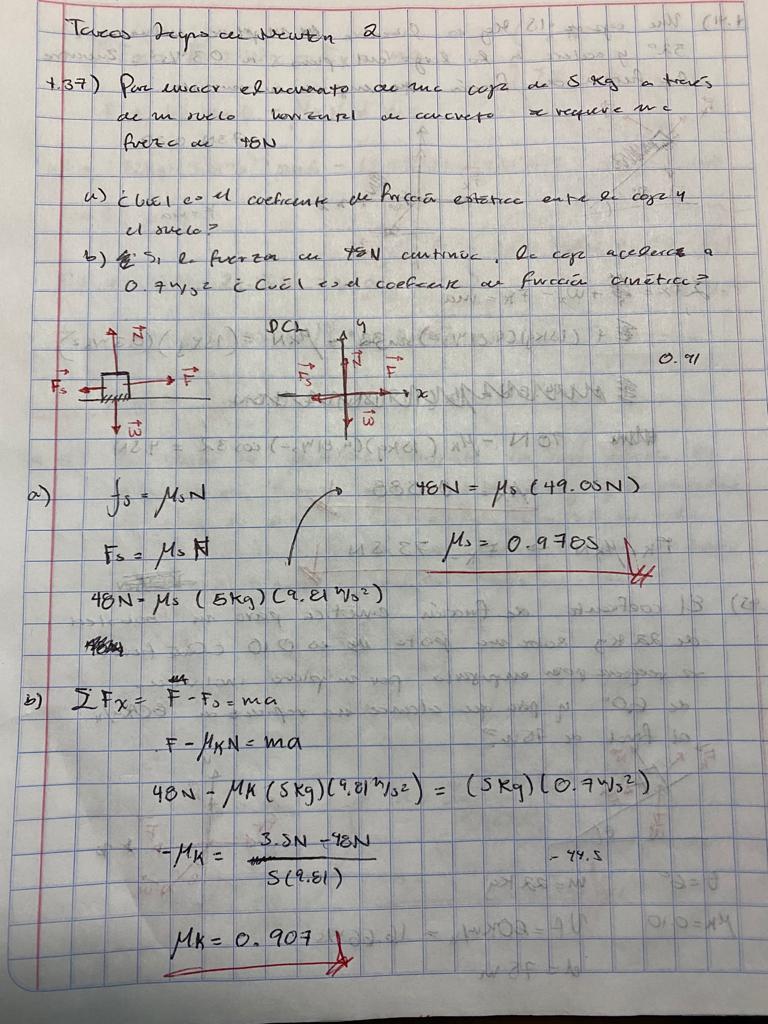 Tarea Leyes de Newton 2
4.37) Para iniciar el movimiento de una caja de 5 Kg a través
de un suelo horizontal de concreto se requiere una
fuerza de 48N
a) ¿Cuál es el coeficiente de fricción estática entre la caja y
el suelo?
b) Si la fuerza de 48N continua, la caja acelera a
0.7 m/s² ¿Cuál es el coeficiente de fricción cinética?
DCL y
N N
Fs F Fs F x
W W
0.91
a) fs = μsN
48N = μs (49.05N)
Fs = μs N
μs = 0.9785
48N = μs (5Kg)(9.81 m/s²)
b) ΣFx = F - Fs = ma
F - μKN = ma
48N - μK (5Kg)(9.81 m/s²) = (5Kg)(0.7 m/s²)
-μK = 3.5N - 48N
5(9.81)
- 44.5
μK = 0.907